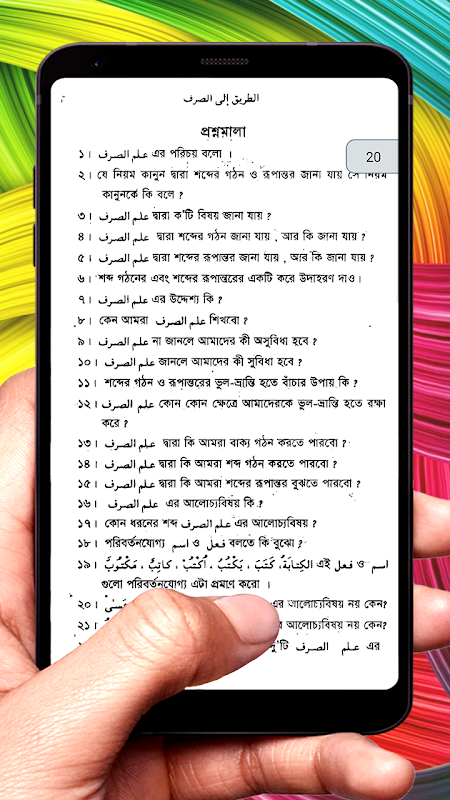 الطريق إلى الصرف
প্রশ্নমালা
20
১। علم الصرف এর পরিচয় বলো ।
২। যে নিয়ম কানুন দ্বারা শব্দের গঠন ও রূপান্তর জানা যায় সে নিয়ম
কানুনকে কি বলে ?
৩। علم الصرف দ্বারা ক'টি বিষয় জানা যায় ?
৪। علم الصرف দ্বারা শব্দের গঠন জানা যায় , আর কি জানা যায় ?
৫। علم الصرف দ্বারা শব্দের রূপান্তর জানা যায় , আর কি জানা যায় ?
৬। শব্দ গঠনের এবং শব্দের রূপান্তরের একটি করে উদাহরণ দাও।
৭। علم الصرف এর উদ্দেশ্য কি ?
৮। কেন আমরা علم الصرف শিখবো ?
৯। علم الصرف না জানলে আমাদের কী অসুবিধা হবে ?
১০। علم الصرف জানলে আমাদের কী সুবিধা হবে ?
১১। শব্দের গঠন ও রূপান্তরের ভুল-ভ্রান্তি হতে বাঁচার উপায় কি ?
১২। علم الصرف কোন কোন ক্ষেত্রে আমাদেরকে ভুল-ভ্রান্তি হতে রক্ষা
করে ?
১৩। علم الصرف দ্বারা কি আমরা বাক্য গঠন করতে পারবো ?
১৪। علم الصرف দ্বারা কি আমরা শব্দ গঠন করতে পারবো ?
১৫। علم الصرف দ্বারা কি আমরা শব্দের রূপান্তর বুঝতে পারবো ?
১৬। علم الصرف এর আলোচ্যবিষয় কি ?
১৭। কোন ধরনের শব্দ علم الصرف এর আলোচ্যবিষয় ?
১৮। পরিবর্তনযোগ্য اسم ও فعل বলতে কি বুঝো ?
১৯। الكِتَابَةُ، كَتَبَ ، يَكْتُبُ ، اُكْتُبْ ، كاتِبٌ ، مَكْتُوْبٌ এই فعل ও اسم
গুলো পরিবর্তনযোগ্য এটা প্রমাণ করো ।
২০। এর আলোচ্যবিষয় নয় কেন?
২১। এর আলোচ্যবিষয় নয় কেন?
দু'টি علم الصرف এর